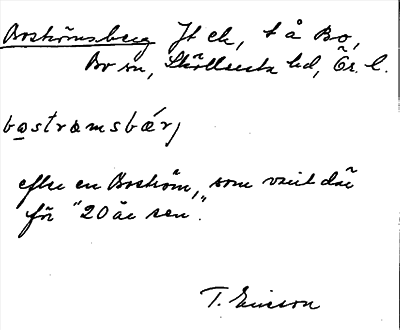 Boströmsberg Jt ek, t å Bo,
Bo sn, Sköllersta hd, Ör. l.
bostrœmsbærj
efter en Boström, som varit där
för "20 år sen".
T. Ericsson